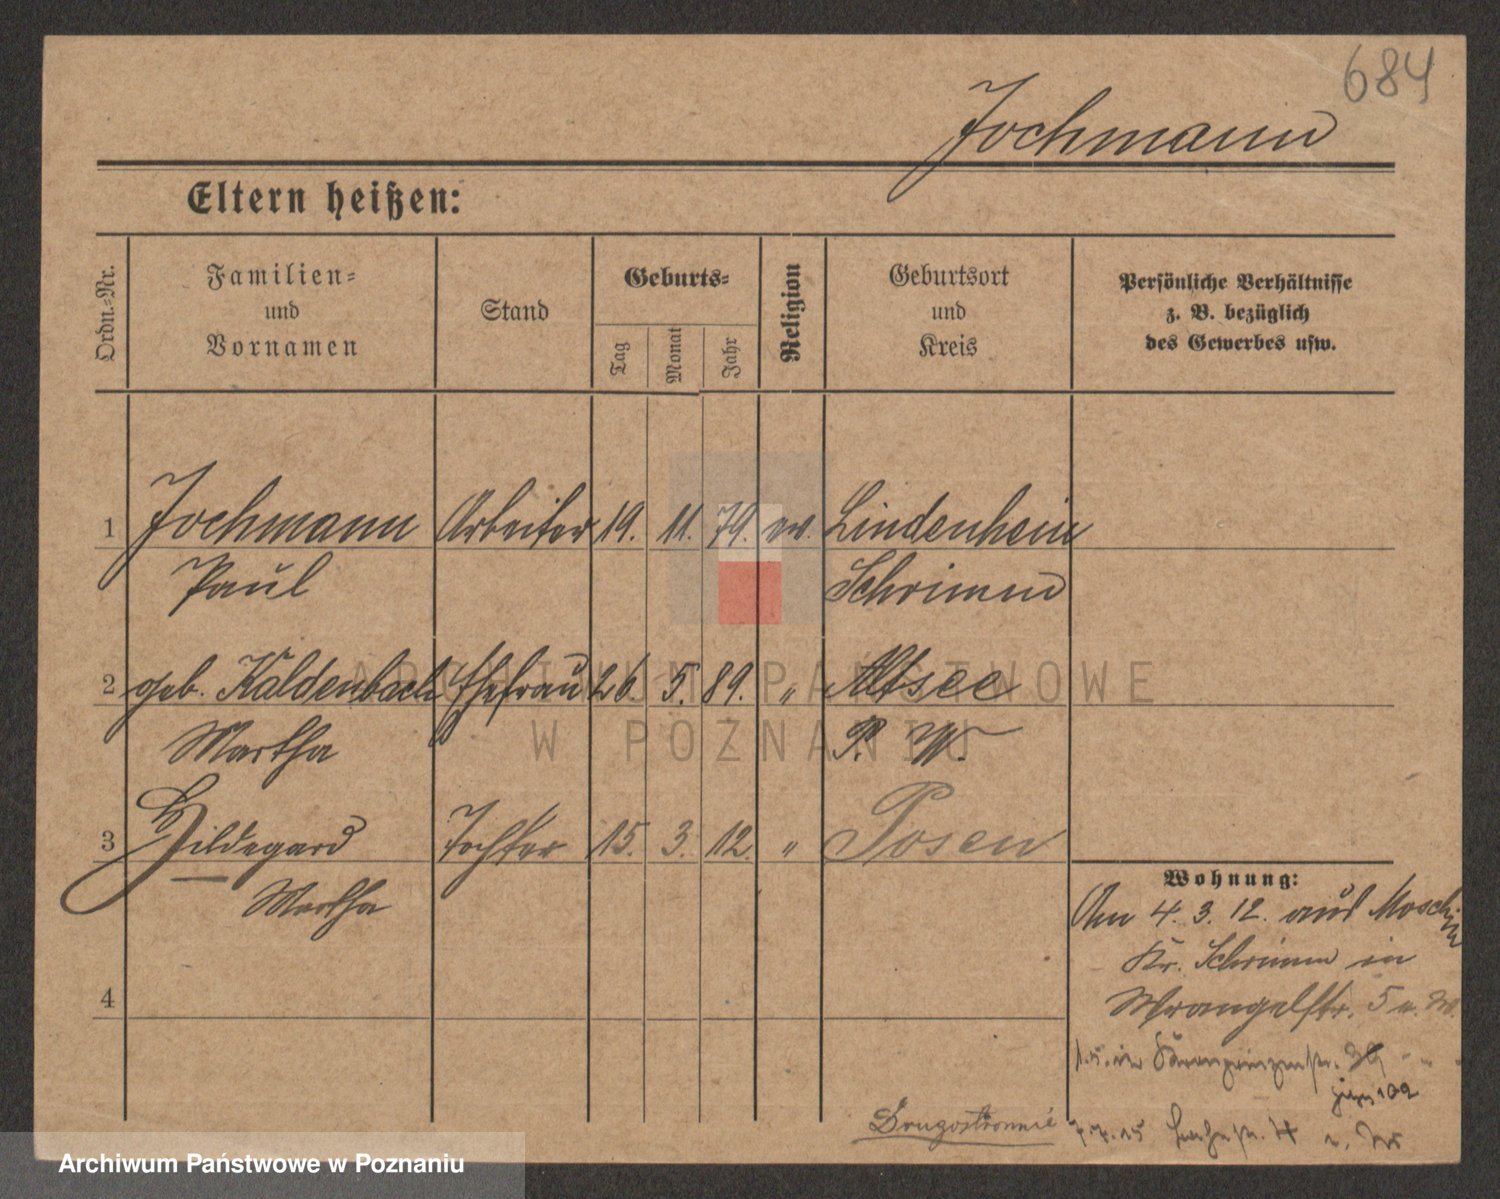 684
Jochmann
Eltern heißen:
Ordn.-Nr.
Familien-
und
Vornamen
Stand
Geburts-
Tag
Monat
Jahr
Religion
Geburtsort
und
Kreis
Persönliche Verhältnisse
z. B. bezüglich
des Gewerbes usw.
1 Jochmann Arbeiter 19. 11. 79. ev. Lindenhein
Paul Schrimm
2 geb. Kaldenbach Ehefrau 26. 5. 89. " Altsee
Martha P. W.
3 Hildegard Tochter 15. 3. 12. " Posen
Martha
4
Wohnung:
Am 4. 3. 12. aus Moschin
Kr. Schrimm in
Wrangelstr. 5
Kronprinzenstr.
7.7.15
Drugostronnie
ARCHIWUM PAŃSTWOWE
W POZNANIU
Archiwum Państwowe w Poznaniu